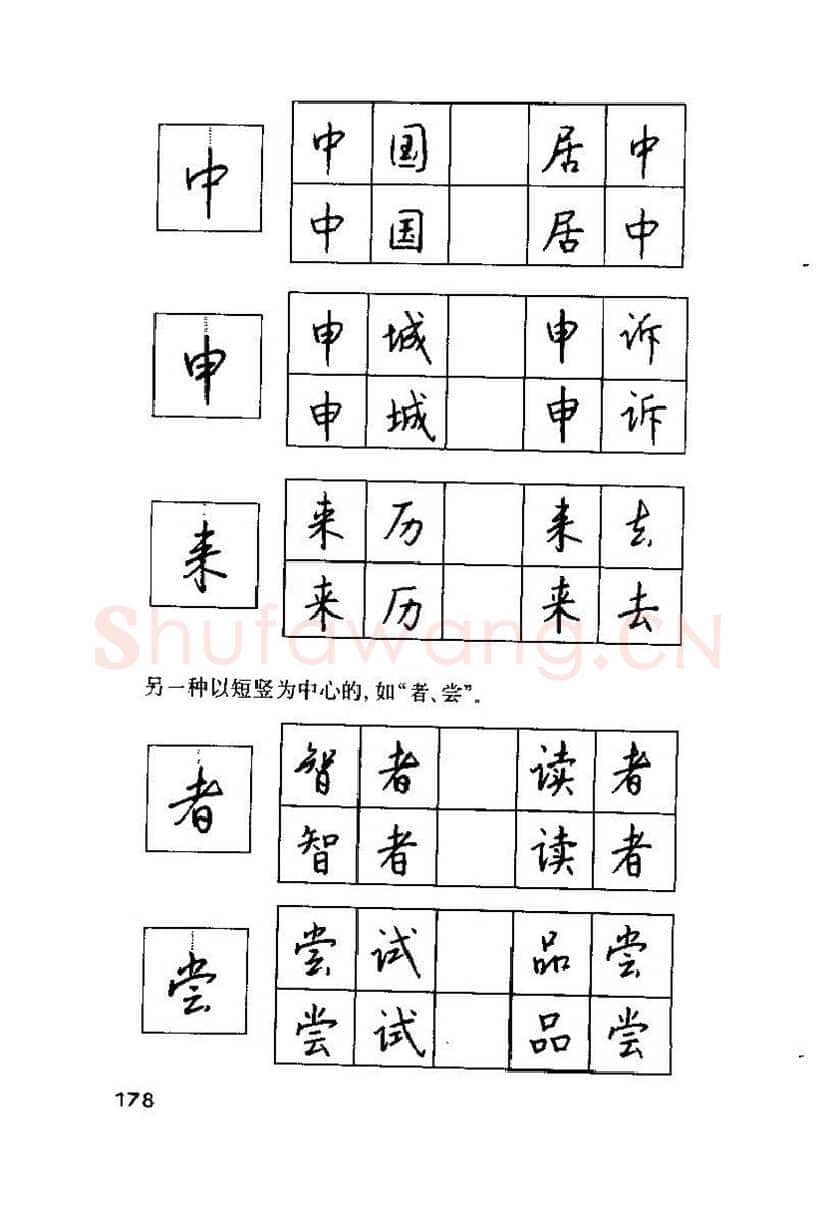 中 国 居 中
中
中 国 居 中
申 城 申 诉
申
申 城 申 诉
来 历 来 去
来
来 历 来 去
Shufawang.CN
另一种以短竖为中心的,如“者、尝”。
智 者 读 者
者
智 者 读 者
尝 试 品 尝
尝
尝 试 品 尝
178